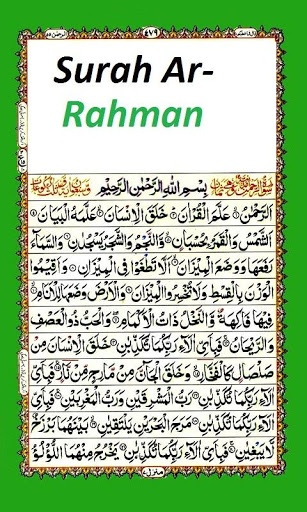 ٤٧٩
Surah Ar-
Rahman
بِسْمِ اللهِ الرَّحْمٰنِ الرَّحِيْمِ
اَلرَّحْمٰنُ ۝ عَلَّمَ الْقُرْاٰنَ ۝ خَلَقَ الْاِنْسَانَ ۝ عَلَّمَهُ الْبَيَانَ ۝
اَلشَّمْسُ وَالْقَمَرُ بِحُسْبَانٍ ۝ وَّالنَّجْمُ وَالشَّجَرُ يَسْجُدٰنِ ۝ وَالسَّمَآءَ
رَفَعَهَا وَوَضَعَ الْمِيْزَانَ ۝ اَلَّا تَطْغَوْا فِي الْمِيْزَانِ ۝ وَاَقِيْمُوا
الْوَزْنَ بِالْقِسْطِ وَلَا تُخْسِرُوا الْمِيْزَانَ ۝ وَالْاَرْضَ وَضَعَهَا لِلْاَنَامِ ۝
فِيْهَا فَاكِهَةٌ وَّالنَّخْلُ ذَاتُ الْاَكْمَامِ ۝ وَالْحَبُّ ذُو الْعَصْفِ
وَالرَّيْحَانُ ۝ فَبِاَيِّ اٰلَآءِ رَبِّكُمَا تُكَذِّبٰنِ ۝ خَلَقَ الْاِنْسَانَ مِنْ
صَلْصَالٍ كَالْفَخَّارِ ۝ وَخَلَقَ الْجَآنَّ مِنْ مَّارِجٍ مِّنْ نَّارٍ ۝ فَبِاَيِّ
اٰلَآءِ رَبِّكُمَا تُكَذِّبٰنِ ۝ رَبُّ الْمَشْرِقَيْنِ وَرَبُّ الْمَغْرِبَيْنِ ۝ فَبِاَيِّ
اٰلَآءِ رَبِّكُمَا تُكَذِّبٰنِ ۝ مَرَجَ الْبَحْرَيْنِ يَلْتَقِيٰنِ ۝ بَيْنَهُمَا بَرْزَخٌ
لَّا يَبْغِيٰنِ ۝ فَبِاَيِّ اٰلَآءِ رَبِّكُمَا تُكَذِّبٰنِ ۝ يَخْرُجُ مِنْهُمَا اللُّؤْلُؤُ
منزل ٧